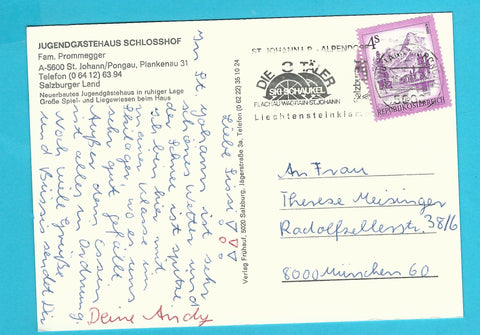 JUGENDGÄSTEHAUS SCHLOSSHOF
Fam. Prommegger
A-5600 St. Johann/Pongau, Plankenau 31
Telefon (0 64 12) 63 94
Salzburger Land
Neuerbautes Jugendgästehaus in ruhiger Lage
Große Spiel- und Liegewiesen beim Haus
Liebe Sissi!
In St. Johann ist sehr
schönes Wetter und
der Schnee ist spitze.
Ich bin hier mit
meiner Klasse im
Skilager, wo es uns
sehr gut gefällt.
Außer dem Essen
ist alles in Ordnung.
Noch viele Grüße
und Bussis sendet Dir
Deine Andy
Verlag Frühauf, 5020 Salzburg, Jägerstraße 3a, Telefon (0 62 22) 35 10 24
ST. JOHANN I. P. - ALPENDORF
DIE 3 TÄLER
SKI-SCHAUKEL
FLACHAU WAGRAIN ST. JOHANN
Liechtensteinklamm
4S
REPUBLIK ÖSTERREICH
An Frau
Therese Meisinger
Radolfzellerstr. 38/6
8000 München 60